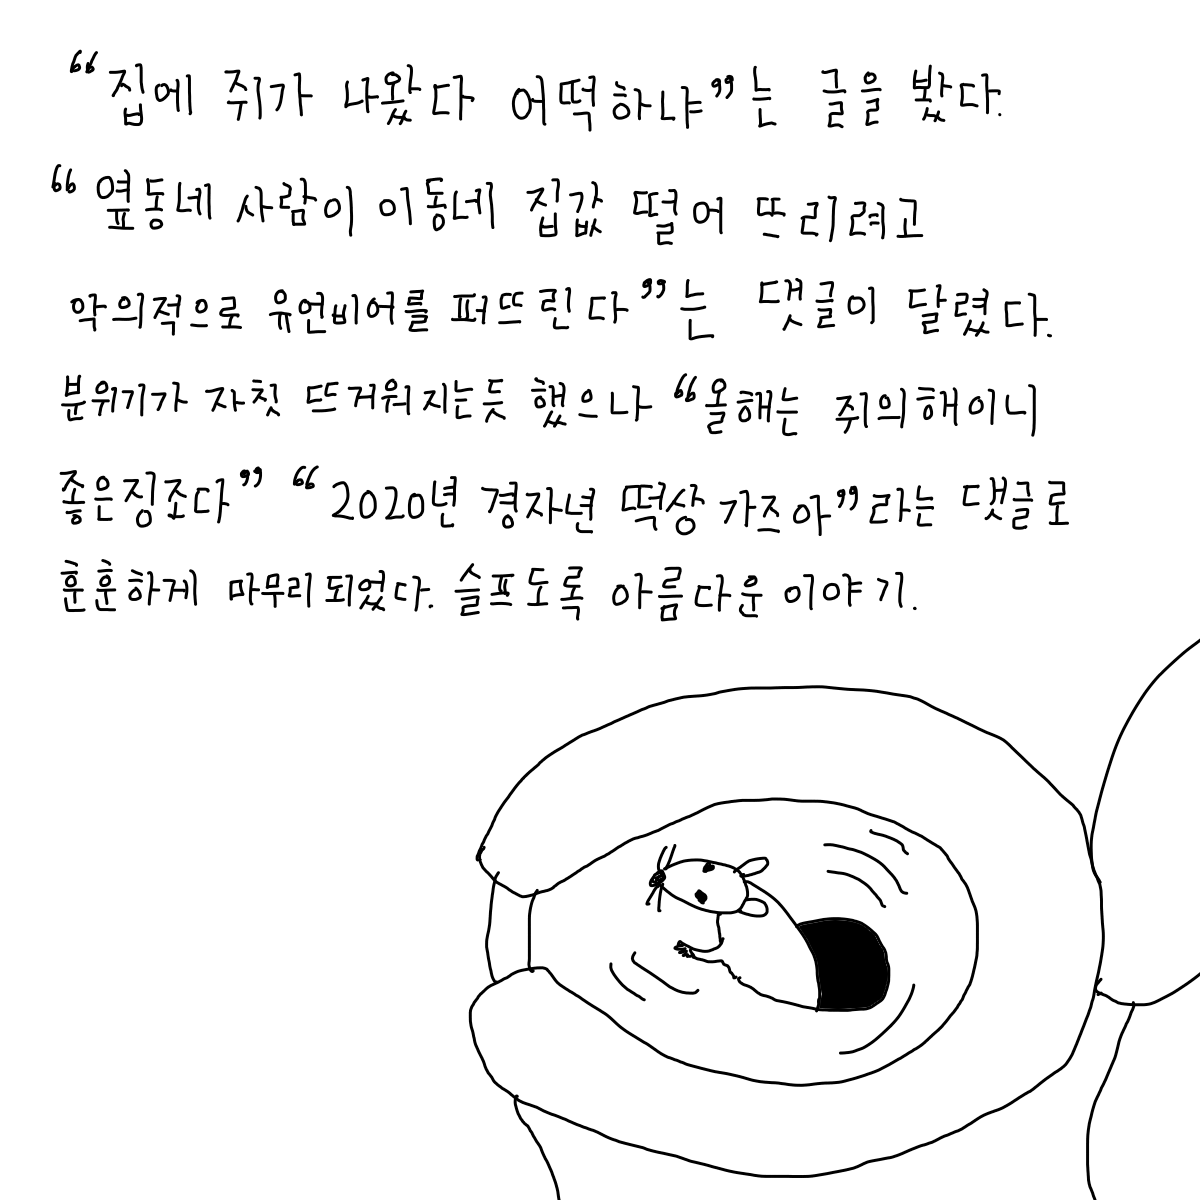 “집에 쥐가 나왔다 어떡하냐”는 글을 봤다.
“옆동네 사람이 이동네 집값 떨어 뜨리려고
악의적으로 유언비어를 퍼뜨린다”는 댓글이 달렸다.
분위기가 자칫 뜨거워지는듯 했으나 “올해는 쥐의해이니
좋은징조다” “2020년 경자년 떡상 가즈아”라는 댓글로
훈훈하게 마무리되었다. 슬프도록 아름다운 이야기.